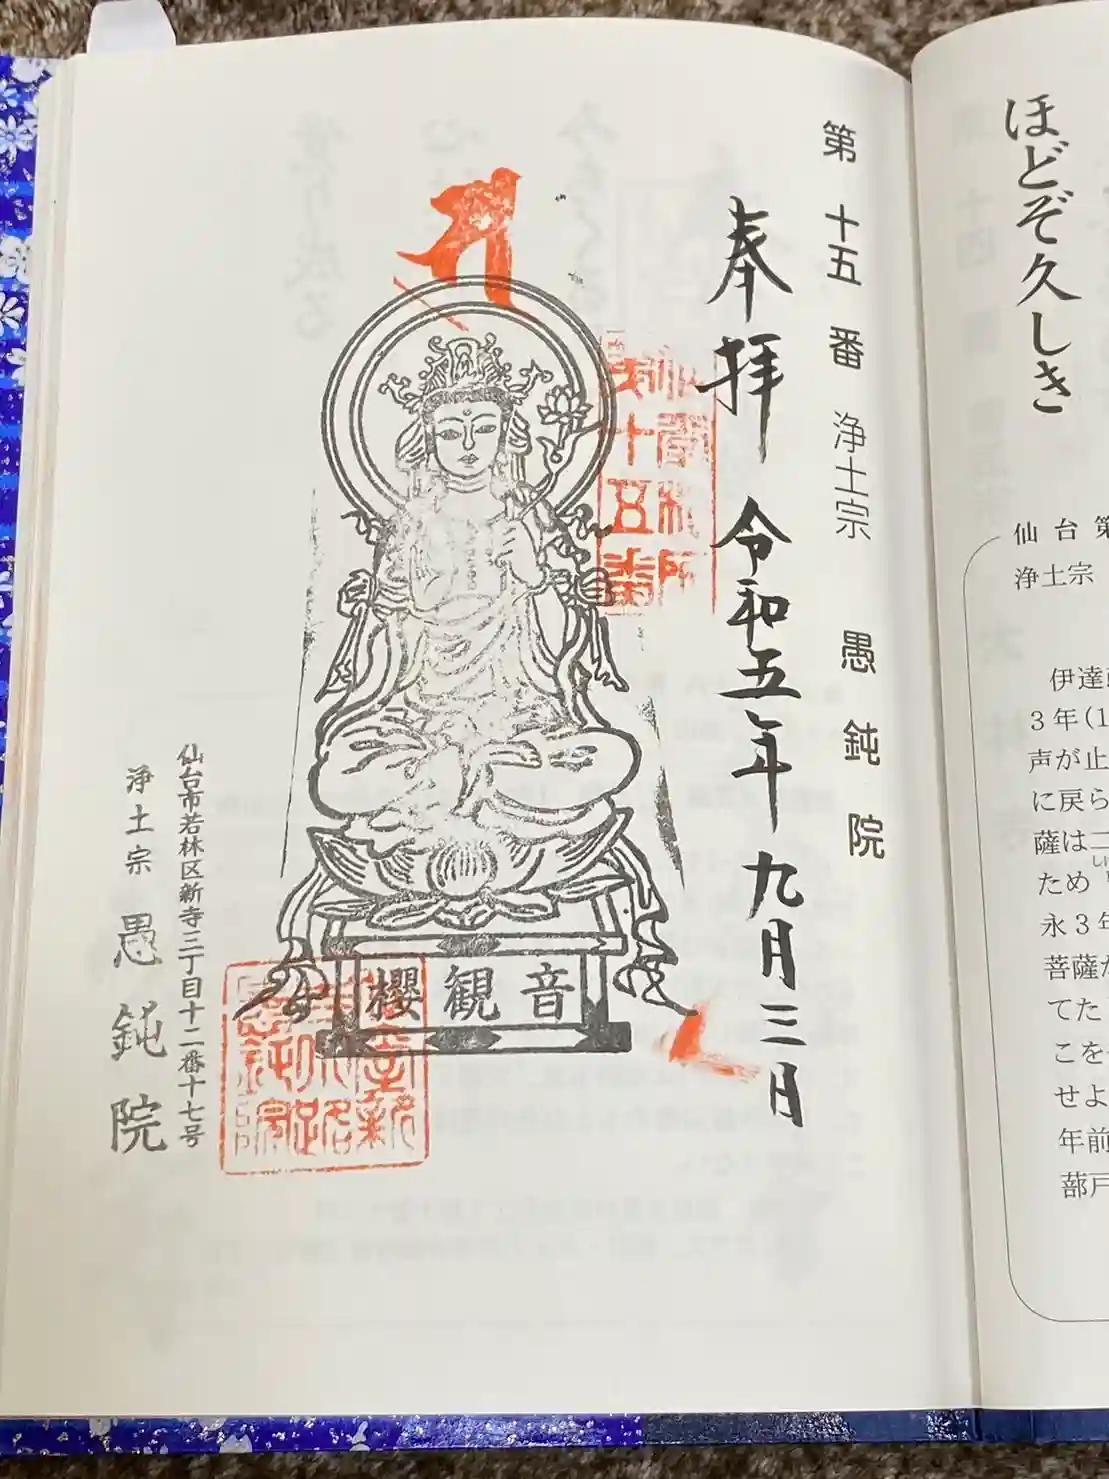 ほどぞ久しき
仙台第
浄土宗
伊達
3年(1
声が止
に戻ら
薩は二
ため
永3年
菩薩が
てた
こを
せよ
年前
蔀戸
第十五番 浄土宗 愚鈍院
奉拝 令和五年九月三日
十五番
櫻観音
仙台市若林区新寺三丁目十二番十七号
浄土宗 愚鈍院